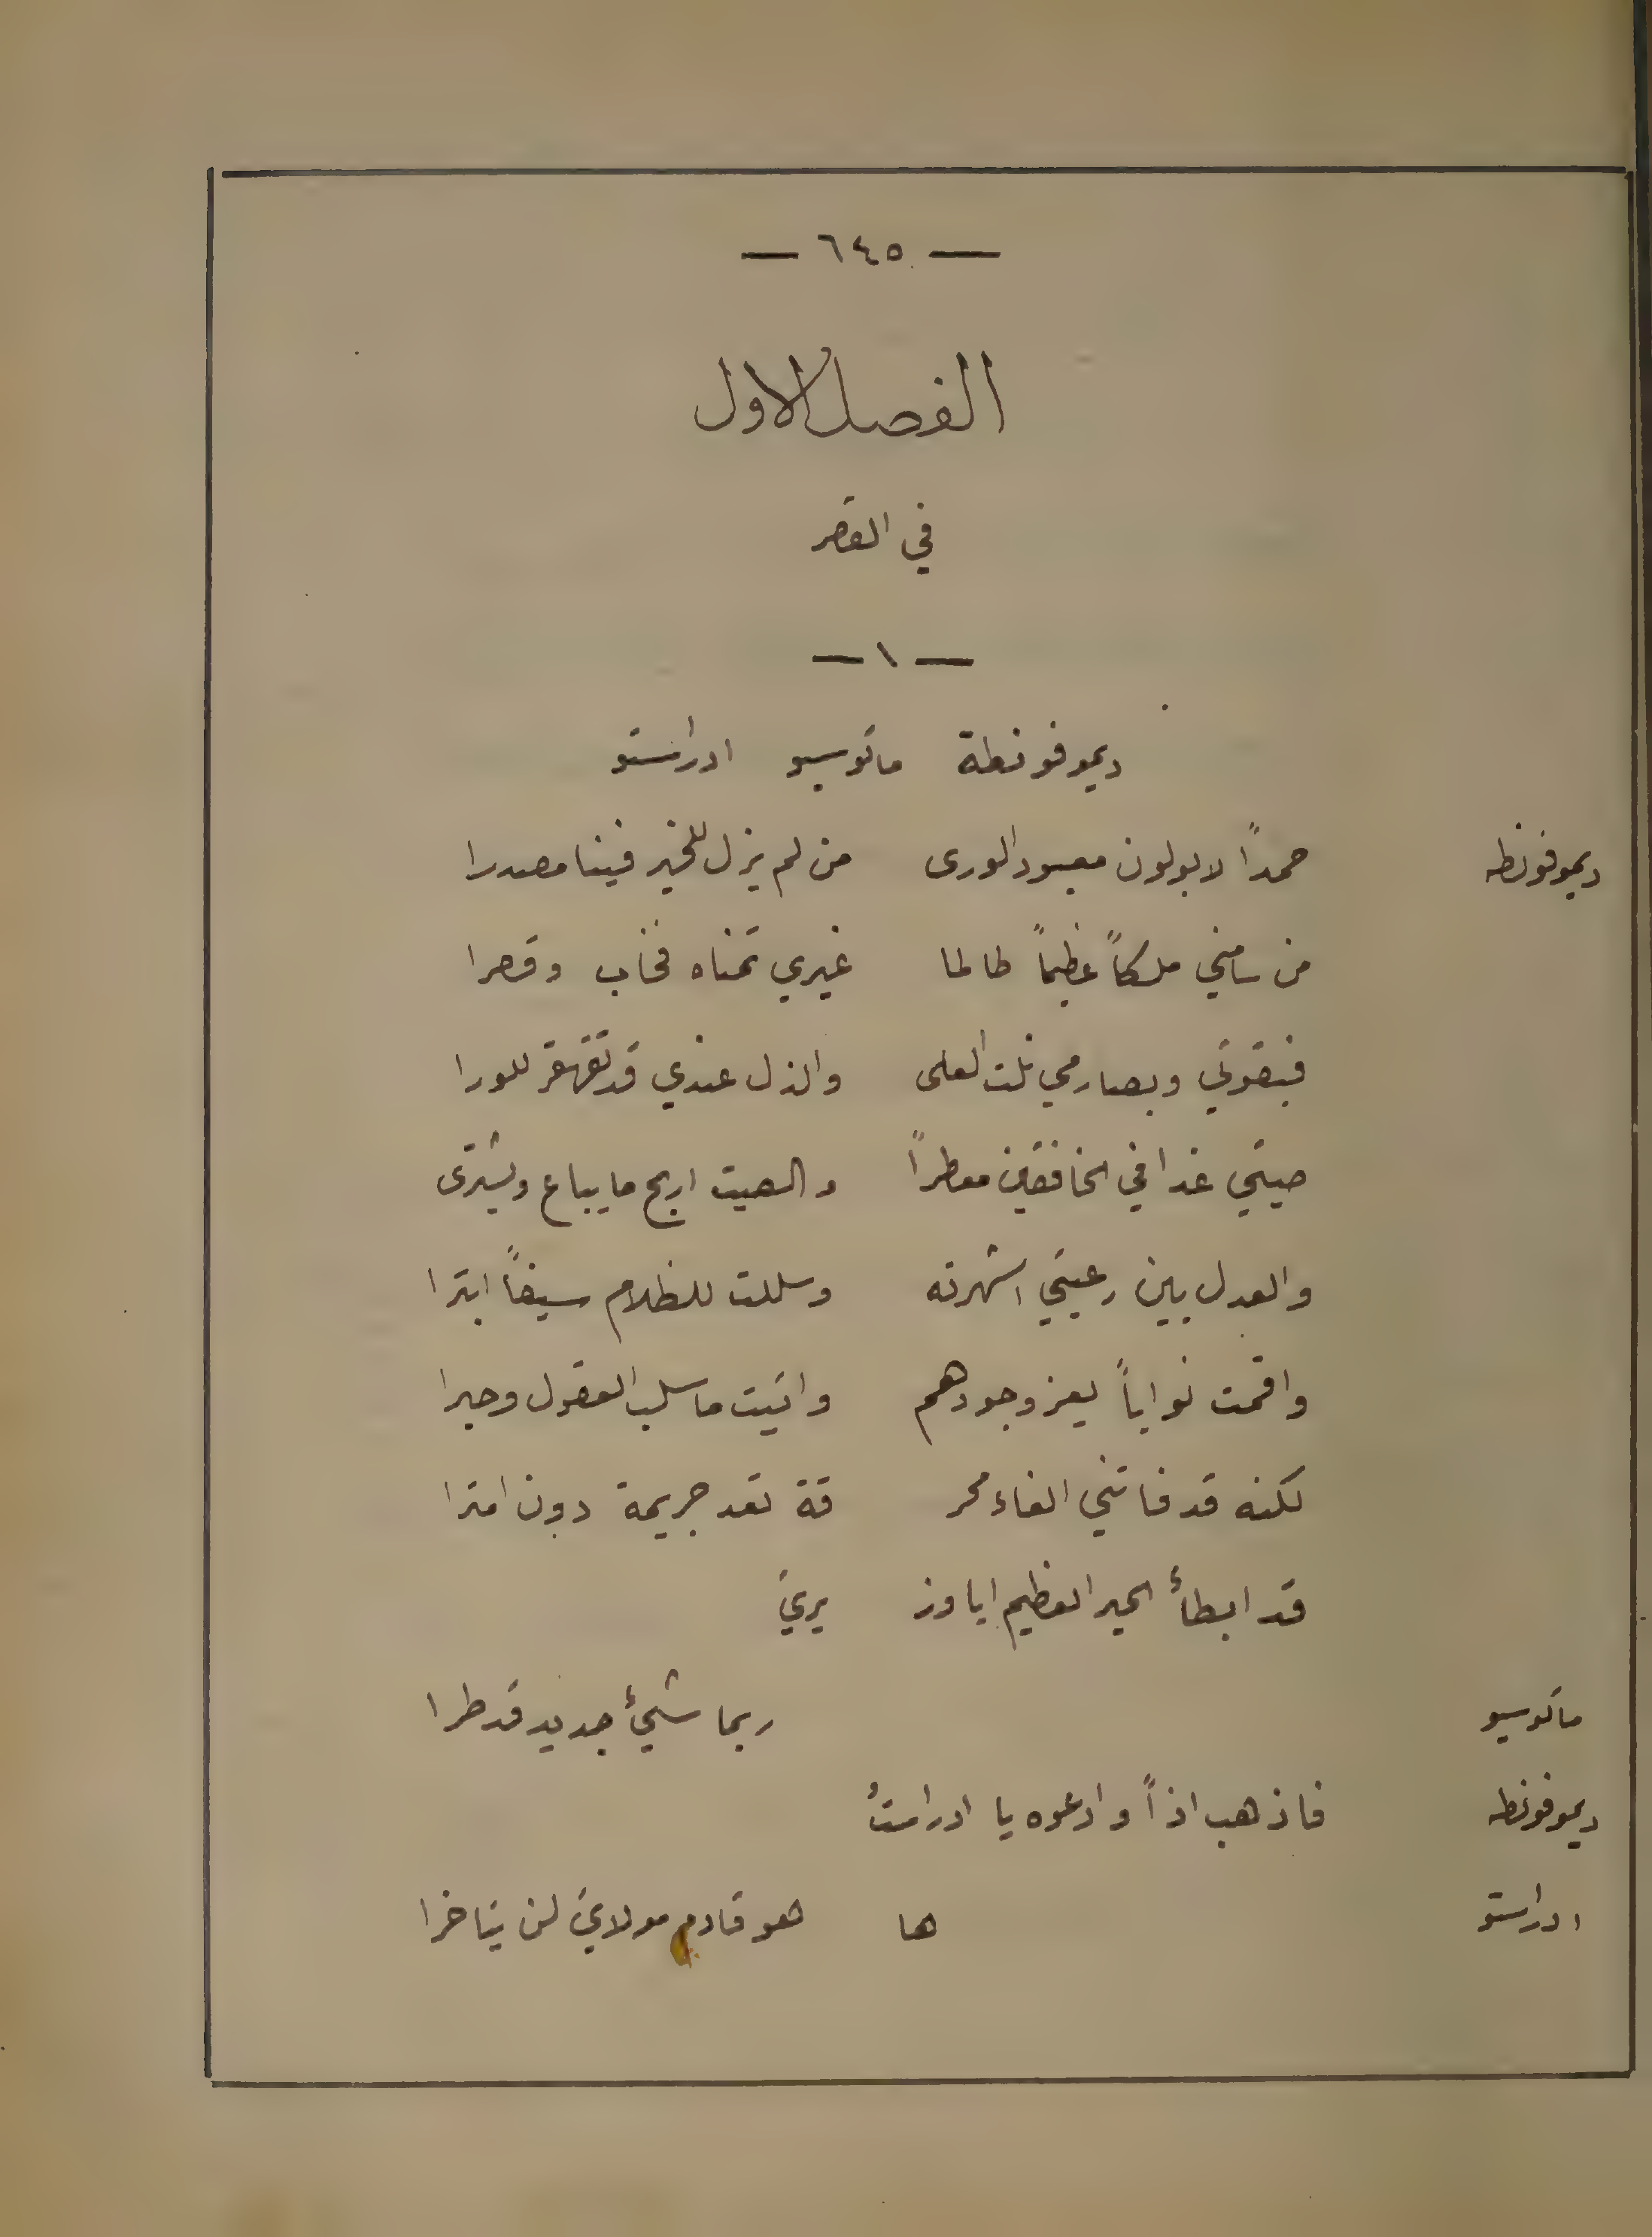 — ٦٤٥ —
الفصل الاول
في القصر
— ١ —
ديموفونطة ماتوسيو ادراستو
ديموفونطه حمداً لابولون معبود الورى من لم يزل للخير فينا مصدرا
من سامني ملكاً عظيماً طالما غيري تمناه فخاب وقصرا
فبقوتي وبصارمي نلت العلى والذل عندي قد تقهقر للورا
صيتي غدا في الخافقين معطراً والصيت اربح ما يباع ويشترى
والعدل بين رعيتي اشهرته وسللت للظلام سيفاً ابترا
واقمت نواباً يعز وجودهم واتيت ما سلب العقول وحيرا
لكنه قد فاتني الغاء محر قة تعد جريمة دون امترا
قد ابطأ الحبر العظيم اياوز يري
ماتوسيو ربما شيئ جديد قد طرا
ديموفونطه فاذهب اذاً وادعوه يا ادراستُ
ادراستو ها هو قادم مولاي لن يتاخرا